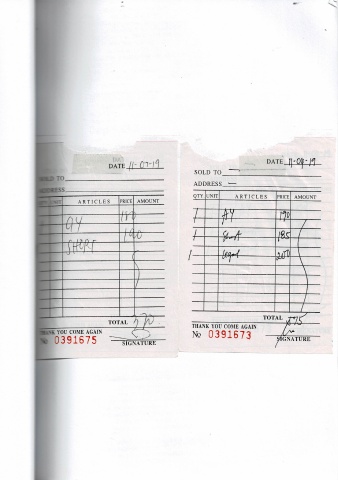 DATE 11-07-19
SOLD TO
ADDRESS
UNIT ARTICLES PRICE AMOUNT
SHORT 190
TOTAL
THANK YOU COME AGAIN
No 0391675
SIGNATURE
DATE 11-07-19
SOLD TO —
ADDRESS —
QTY UNIT ARTICLES PRICE AMOUNT
1 A4 190
1 Short 185
1 Legal 200
TOTAL 575
THANK YOU COME AGAIN
No 0391673
SIGNATURE